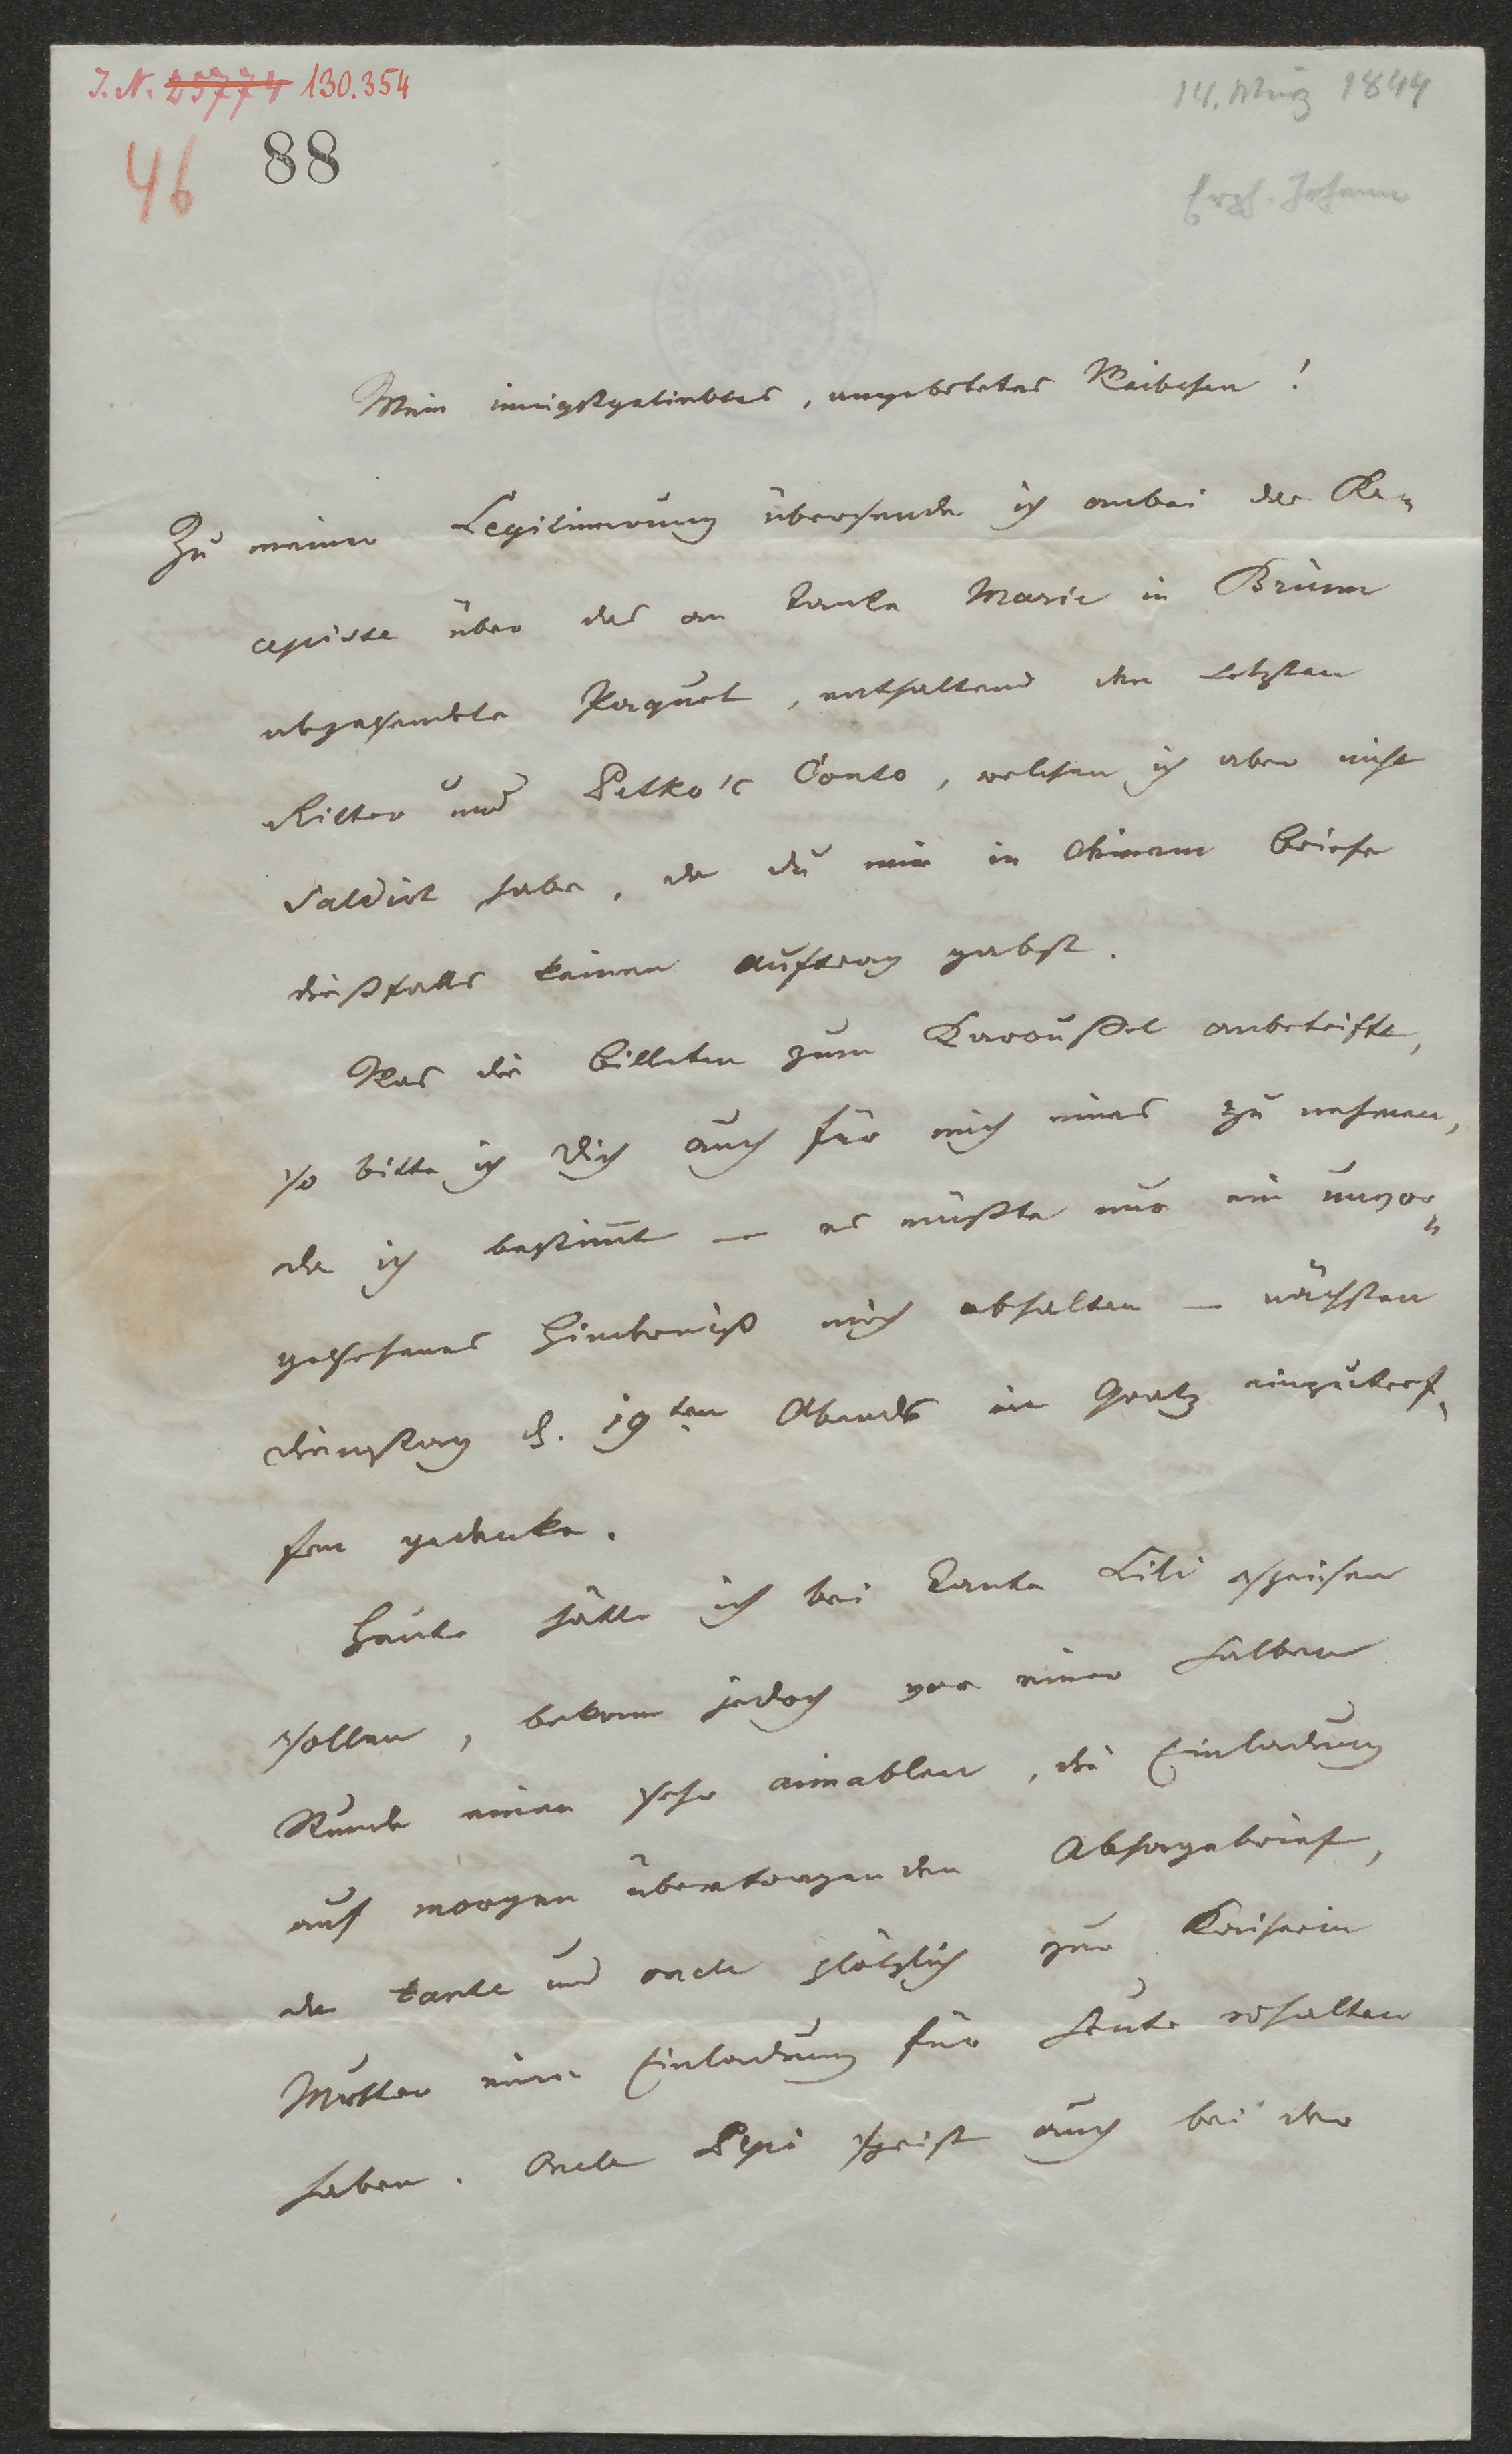 I. N. 25774 130.354
14. März 1844
46 88
Erzh. Johann
Mein innigstgeliebtes, angebetetes Weibchen!
Zu meiner Legitimirung übersende ich anbei das Re„
cepisse über das an Tante Marie in Brünn
abgesendete Paquet, enthaltend den Letzten
Ritter und Petko's Conto, welchen ich aber nicht
saldirt habe, da du mir in Deinem Briefe
dießfalls keinen Auftrag gabst.
Was die Billeten zum Caroussel anbetrifft,
so bitte ich dich auch für mich eines zu nehmen,
da ich bestimmt — es müßte nur ein unvor„
gesehenes Hinderniß mich abhalten — nächsten
Dienstag d. 19ten Abends in Gratz einzutref„
fen gedenke.
Heute hätte ich bei Tante Lili speisen
sollen, bekam jedoch vor einer halben
Stunde einen sehr aimablen, die Einladung
auf morgen übertragenden Absagebrief,
da Tante und Oncle plötzlich zur Kaiserin
Mutter eine Einladung für heute erhalten
haben. Oncle Pepi speist auch bei der